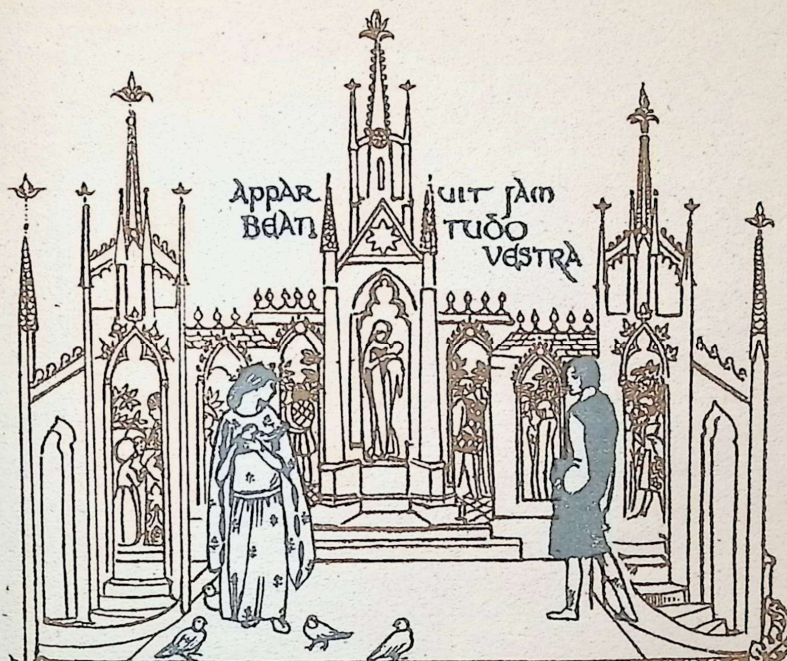 APPAR UIT JAM
BEATI TUDO
VESTRA